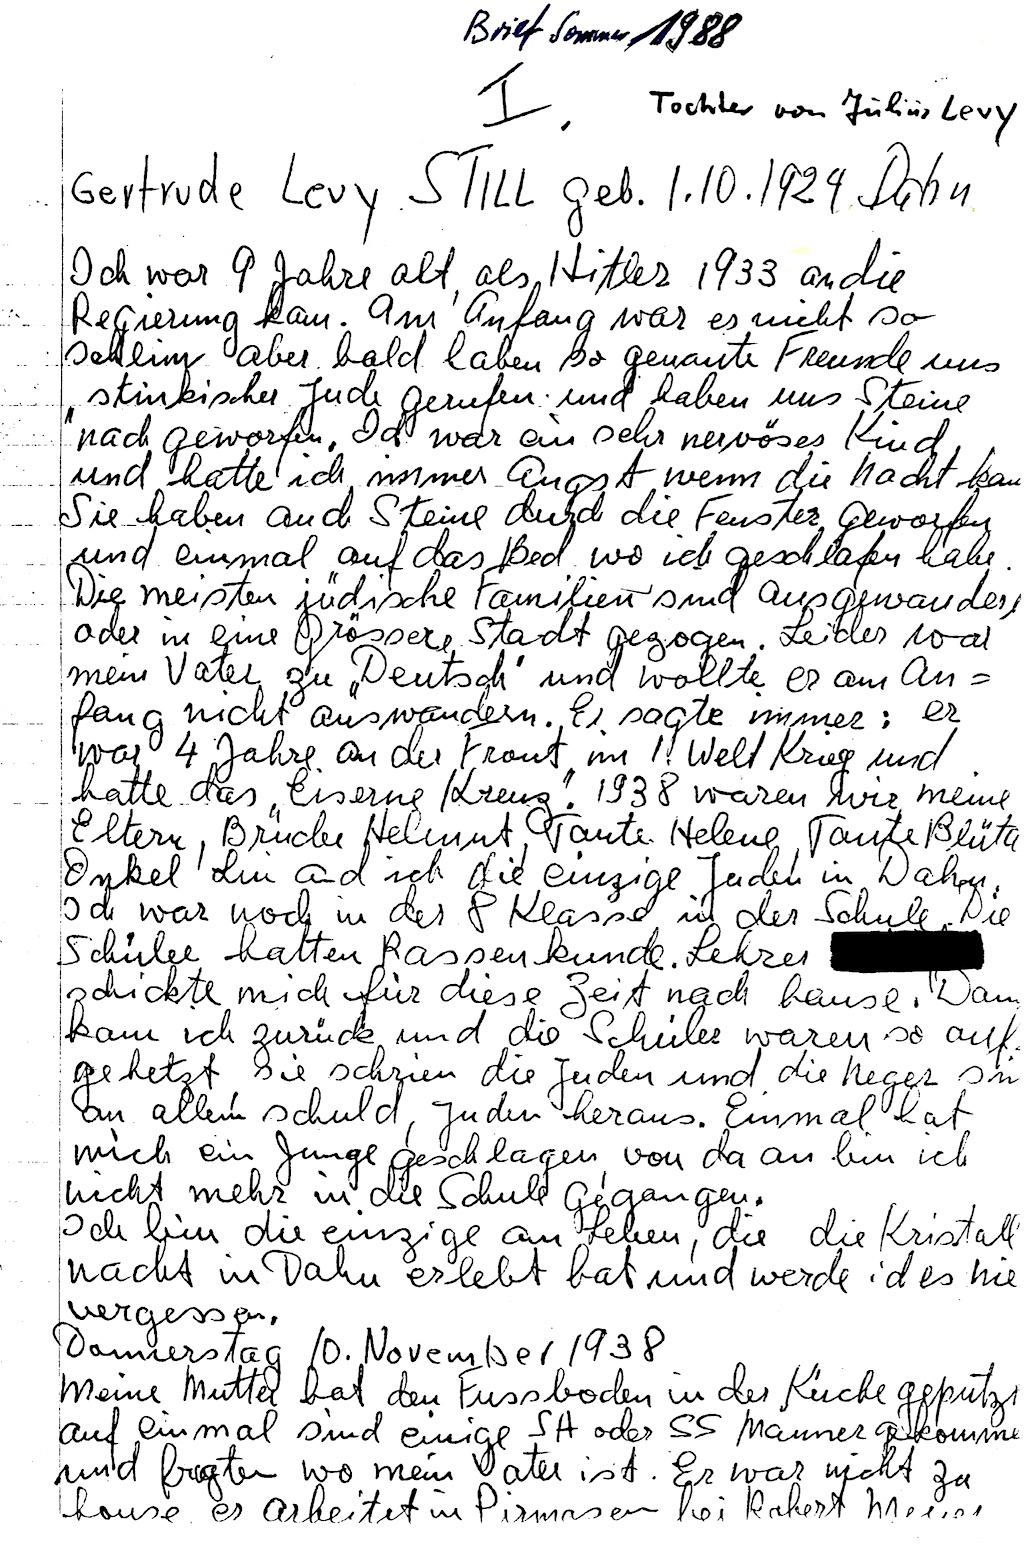 Brief Sommer 1988
I.
Tochter von Julius Levy
Gertrude Levy STILL geb. 1.10.1924 Dahn
Ich war 9 Jahre alt, als Hitler 1933 an die
Regierung kam. Am Anfang war es nicht so
schlim aber bald haben so genante Freunde uns
"stinkischer Jude gerufen und haben uns Steine
nach geworfen. Ich war ein sehr nervöses Kind
und hatte ich immer Angst wenn die Nacht kam
Sie haben auch Steine durch die Fenster geworfen
und einmal auf das Bed wo ich geschlafen habe.
Die meisten jüdische Familien sind ausgewandert
oder in eine Grössere Stadt gezogen. Leider war
mein Vater zu "Deutsch" und wollte er am An=
fang nicht auswandern. Er sagte immer: er
war 4 Jahre an der Front im 1. Welt Krieg und
hatte das "Eiserne Kreuz". 1938 waren wir meine
Eltern, Brüder Helmut, Tante Helene, Tante Blüta
Onkel und ich die einzige Juden in Dahn.
Ich war noch in der 8 Klasse in der Schule. Die
Schüler hatten Rassenkunde. Lehrer
schickte mich für diese Zeit nach hause. Dann
kam ich zurück und die Schüler waren so auf
gehetzt sie schrien die Juden und die Neger sin
an allem schuld, Juden heraus. Einmal hat
mich ein Junge geschlagen, von da an bin ich
nicht mehr in die Schule gegangen.
Ich bin die einzige am Leben, die die Kristall
nacht in Dahn erlebt hat und werde ich es nie
vergessen.
Donnerstag 10. November 1938
Meine Mutter hat den Fussboden in der Küche geputzt
auf einmal sind einige SA oder SS Manner gekomme
und fragten wo mein Vater ist. Er war nicht zu
hause er arbeitet in Pirmasen bei Robert